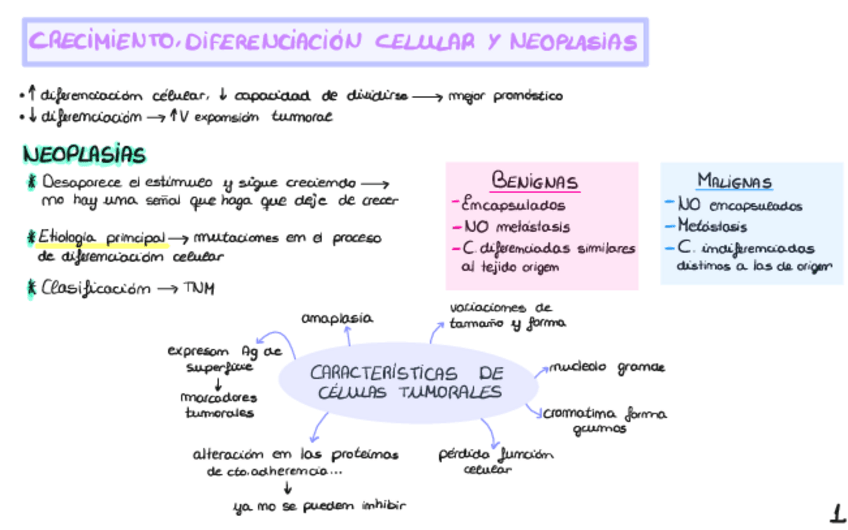 CRECIMIENTO, DIFERENCIACIÓN CELULAR Y NEOPLASIAS
• ↑ diferenciación celular, ↓ capacidad de dividirse → mejor pronóstico
• ↓ diferenciación → ↑V expansión tumoral
NEOPLASIAS
* Desaparece el estímulo y sigue creciendo →
no hay una señal que haga que deje de crecer
* Etiología principal → mutaciones en el proceso
de diferenciación celular
* Clasificación → TNM
BENIGNAS
- Encapsulados
- NO metástasis
- C. diferenciadas similares
al tejido origen
MALIGNAS
- NO encapsulados
- Metástasis
- C. indiferenciadas
distinos a las de origen
CARACTERÍSTICAS DE
CÉLULAS TUMORALES
anaplasia
variaciones de
tamaño y forma
expresan Ag de
superficie
↓
marcadores
tumorales
nucleolo grande
cromatina forma
grumos
alteración en las proteínas
de cto. adherencia...
↓
ya no se pueden inhibir
pérdida función
celular
1